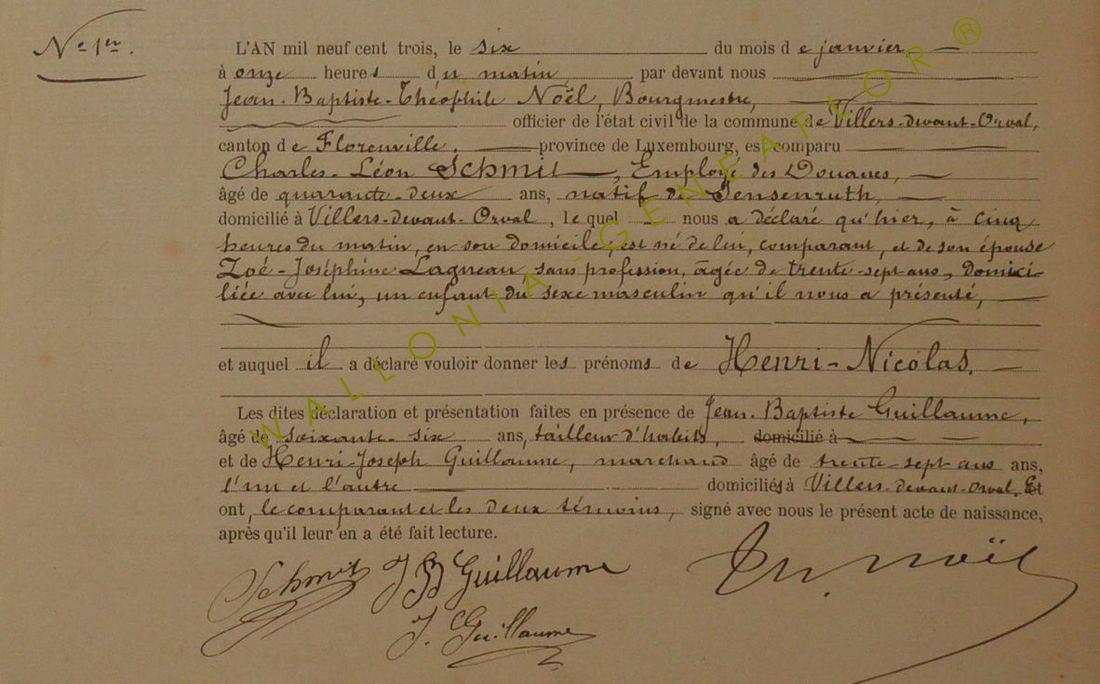 No 1er.
L'AN mil neuf cent trois, le six du mois de janvier
à onze heures du matin, par devant nous
Jean-Baptiste-Théophile Noël, Bourgmestre,
officier de l'état civil de la commune de Villers-devant-Orval,
canton de Florenville, province de Luxembourg, est comparu
Charles-Léon Schmit, Employé des Douanes,
âgé de quarante-deux ans, natif de Sensenruth,
domicilié à Villers-devant-Orval, le quel nous a déclaré qu'hier, à cinq
heures du matin, en son domicile, est né de lui, comparant, et de son épouse
Zoé-Joséphine Lagneau sans profession, âgée de trente-sept ans, domici-
liée avec lui, un enfant du sexe masculin qu'il nous a présenté,
et auquel il a déclaré vouloir donner les prénoms de Henri-Nicolas.
Les dites déclaration et présentation faites en présence de Jean-Baptiste Guillaume,
âgé de soixante-six ans, tailleur d'habits, domicilié à
et de Henri-Joseph Guillaume, marchand âgé de trente-sept ans ans,
l'un et l'autre domiciliés à Villers-devant-Orval. Et
ont, le comparant et les deux témoins, signé avec nous le présent acte de naissance,
après qu'il leur en a été fait lecture.
Schmit J B Guillaume Th. Noël
J. Guillaume
WALLONIA GENEAFLOR ®